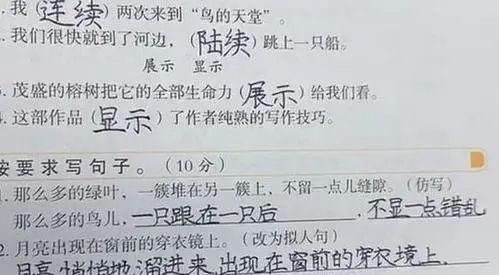 .我(连续)两次来到“鸟的天堂”。
.我们很快就到了河边,(陆续)跳上一只船。
展示 显示
.茂盛的榕树把它的全部生命力(展示)给我们看。
.这部作品(显示)了作者纯熟的写作技巧。
按要求写句子。(10分)
1.那么多的绿叶,一簇堆在另一簇上,不留一点儿缝隙。(仿写)
那么多的鸟儿,一只跟在一只后,不显一点错乱
2.月亮出现在窗前的穿衣镜上。(改为拟人句)
月亮悄悄地溜进来,出现在窗前的穿衣境上.